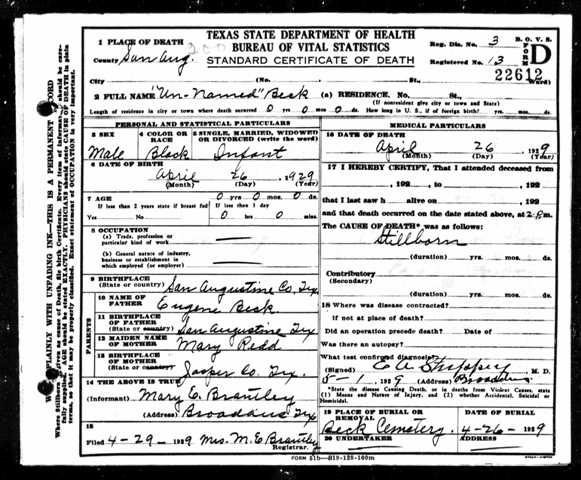 TEXAS STATE DEPARTMENT OF HEALTH
BUREAU OF VITAL STATISTICS
STANDARD CERTIFICATE OF DEATH
Reg. Dis. No. 3
B. O. V. S.
FORM D
Registered No. 13
22612
1 PLACE OF DEATH
County San Aug.
City (No. St., Ward)
2 FULL NAME "Un-Named" Beck (a) RESIDENCE. No. St.,
(If nonresident give city or town and State)
Length of residence in city or town where death occurred 0 yrs 0 mos. 0 ds. How long in U. S., if of foreign birth? yrs. mos. ds.
PERSONAL AND STATISTICAL PARTICULARS
3 SEX
Male
4 COLOR OR RACE
Black
5 SINGLE, MARRIED, WIDOWED OR DIVORCED (write the word)
Infant
6 DATE OF BIRTH
April 26 1929
(Month) (Day) (Year)
7 AGE 0 yrs. 0 mos. 0 ds.
If less than 2 years state if breast fed If less than 1 day
Yes No 0 hrs 0 mins.
8 OCCUPATION
(a) Trade, profession or particular kind of work
(b) General nature of industry, business or establishment in which employed (or employer)
9 BIRTHPLACE
(State or country) San Augustine Co, Tex,
PARENTS
10 NAME OF FATHER Eugene Beck
11 BIRTHPLACE OF FATHER
(State or country) San Augustine Tex
12 MAIDEN NAME OF MOTHER Mary Redd
13 BIRTHPLACE OF MOTHER
(State or country) Jasper Co. Tex.
14 THE ABOVE IS TRUE
(Informant) Mary E. Brantley
(Address) Broaddus Tex
15
Filed 4-29- 1929 Mrs. M. E. Brantley
Registrar.
MEDICAL PARTICULARS
16 DATE OF DEATH
April 26 1929
(Month) (Day) (Year)
17 I HEREBY CERTIFY, That I attended deceased from
, 192 , to , 192
that I last saw h alive on , 192
and that death occurred on the date stated above, at 2:8m.
The CAUSE OF DEATH* was as follows:
Stillborn
(duration) yrs. mos. ds.
Contributory
(Secondary)
(duration) yrs. mos. ds.
18 Where was disease contracted?
If not at place of death?
Did an operation precede death? Date of
Was there an autopsy?
What test confirmed diagnosis?
(Signed) M. D.
8-1- 1929 (Address) Broaddus
*State the Disease Causing Death, or in deaths from Violent Causes, state (1) Means and Nature of Injury, and (2) whether Accidental, Suicidal or Homicidal.
19 PLACE OF BURIAL OR REMOVAL
Beck Cemetery.
DATE OF BURIAL
4-26-1929
20 UNDERTAKER
ADDRESS